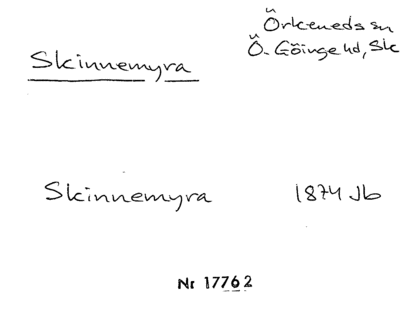 Örkeneds sn
Skinnemyra
Ö. Göinge hd, Sk
Skinnemyra 1874 Jb
Nr 17762